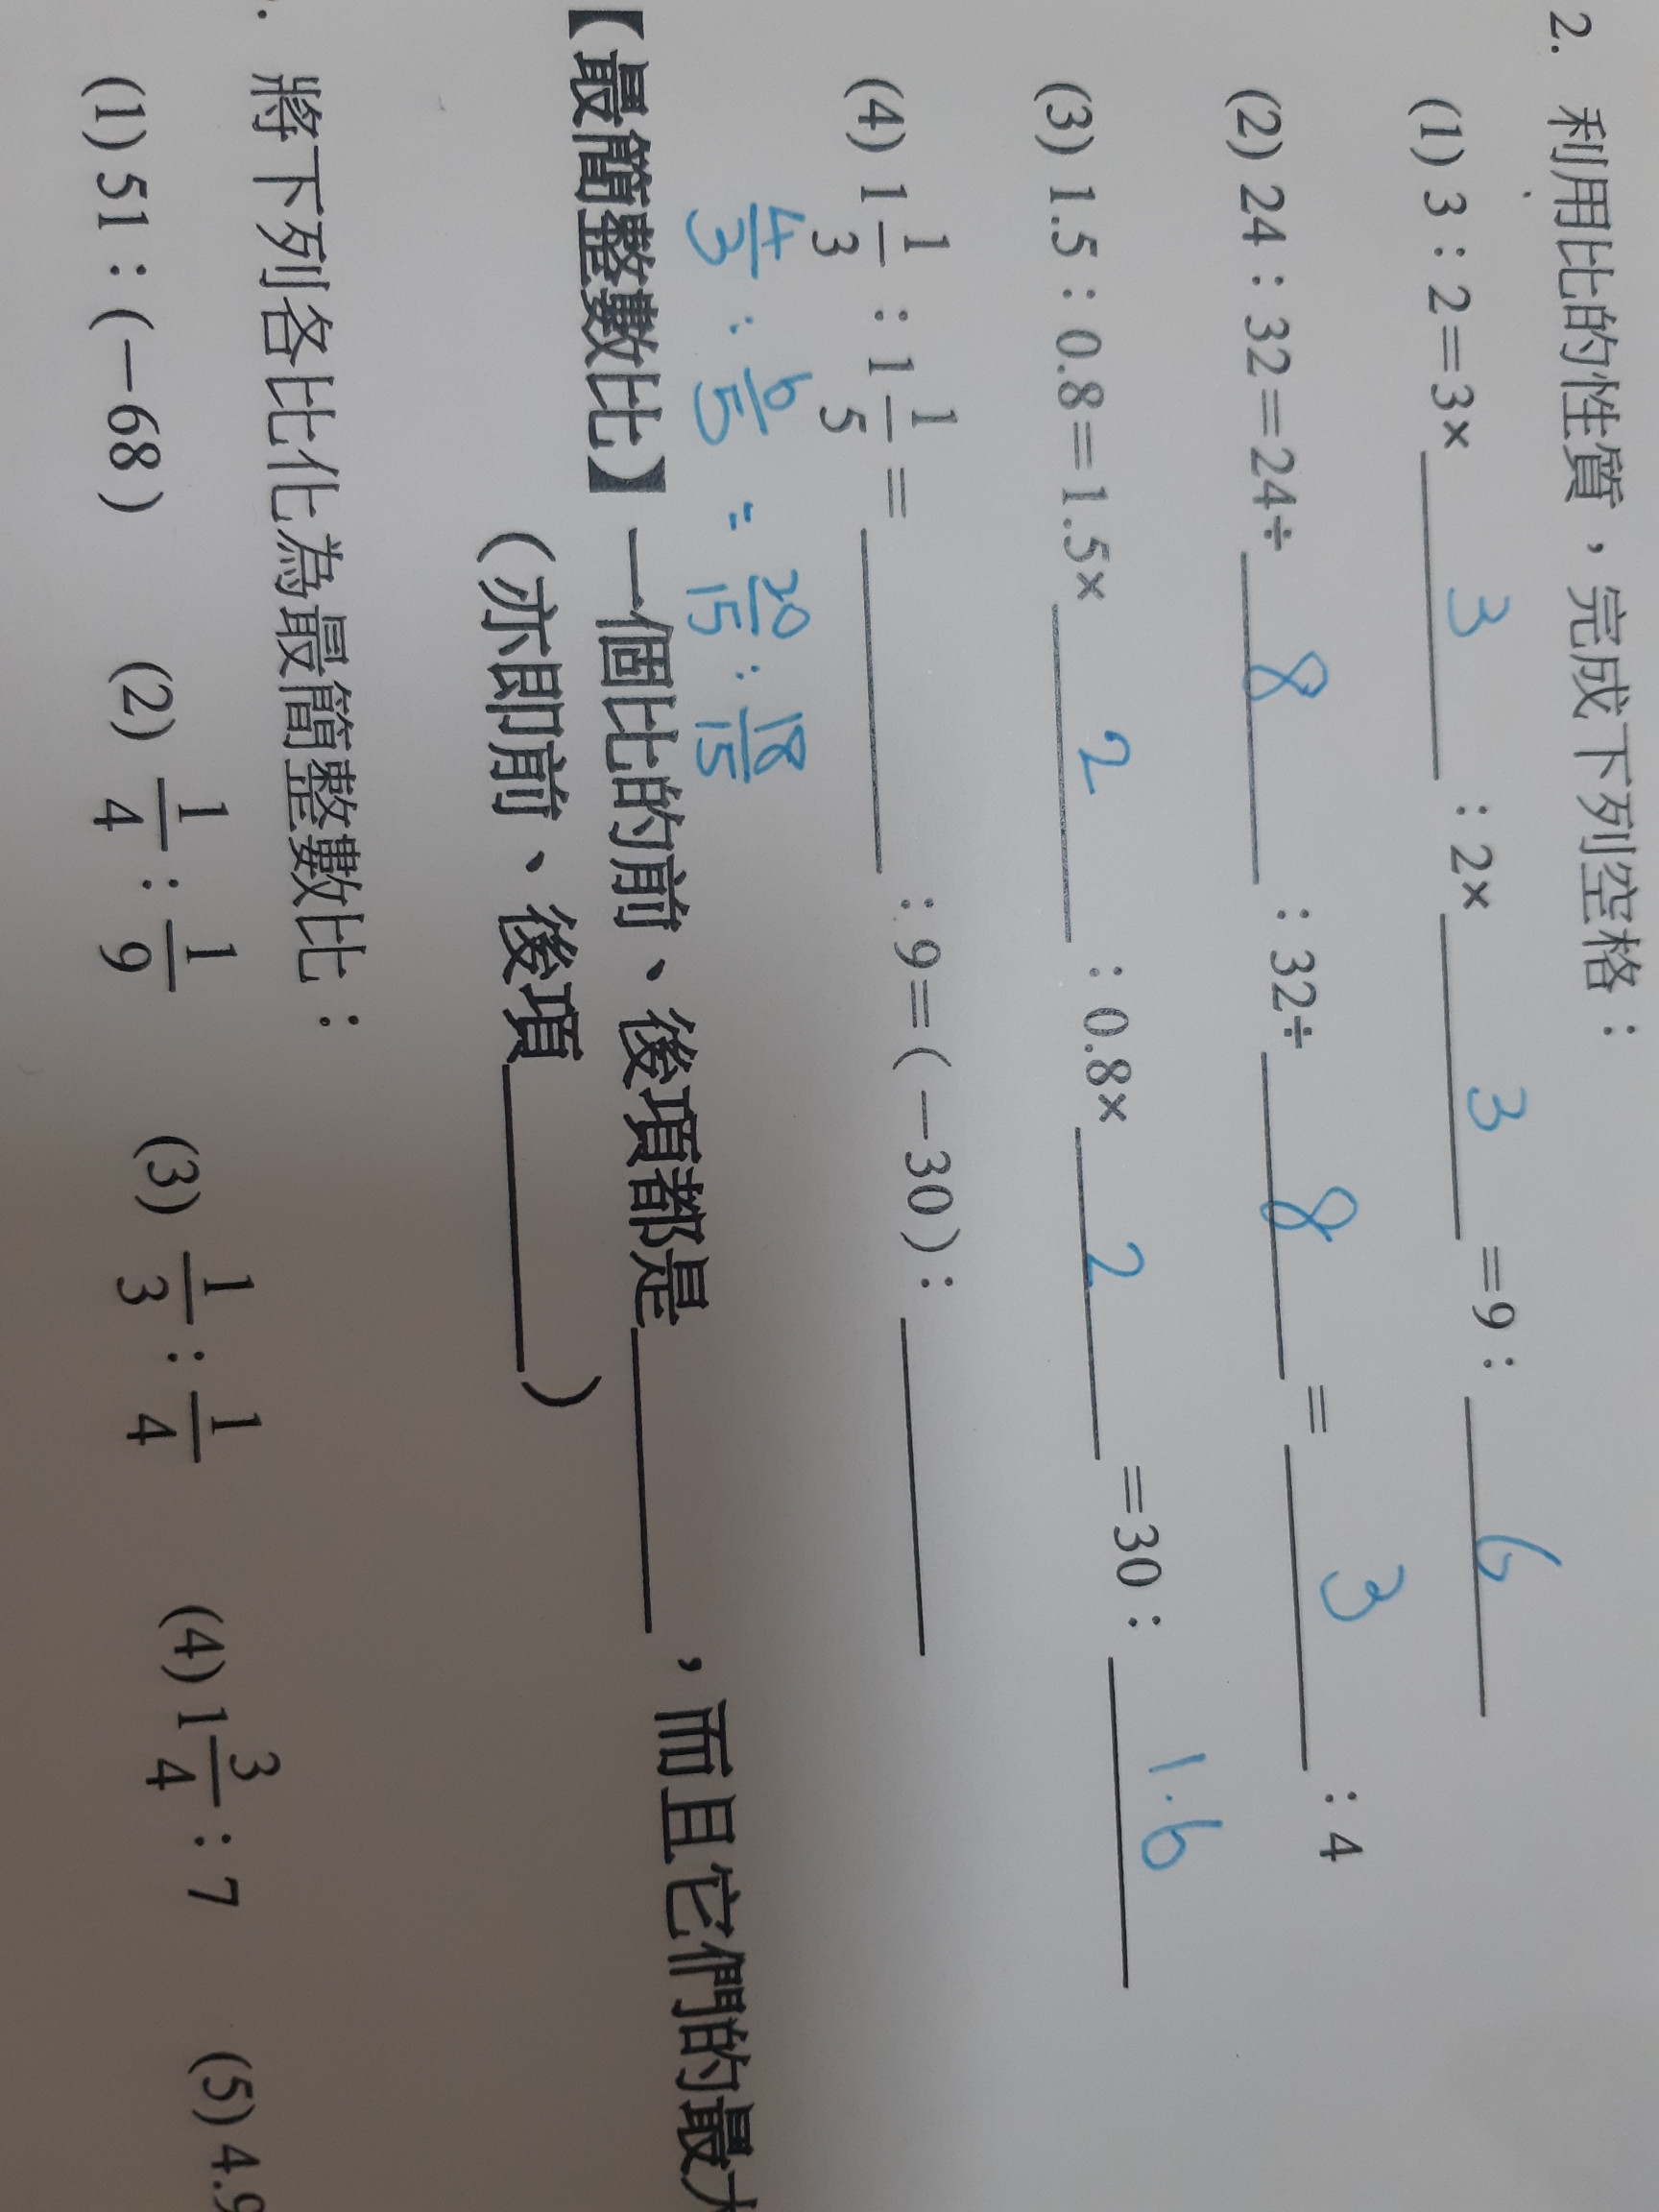 2. 利用比的性質，完成下列空格：
(1) 3：2＝3× 3 ：2× 3 ＝9： 6
(2) 24：32＝24÷ 8 ：32÷ 8 ＝ 3 ：4
(3) 1.5：0.8＝1.5× 2 ：0.8× 2 ＝30： 1.6
(4) 1 1/3 ：1 1/5 ＝ ____ ：9＝(－30)： ____
4/3 : 6/5 = 20/15 : 18/15
【最簡整數比】一個比的前、後項都是____，而且它們的最
（亦即前、後項____）
將下列各比化為最簡整數比：
(1) 51：(－68) (2) 1/4：1/9 (3) 1/3：1/4 (4) 1 3/4：7 (5) 4.9